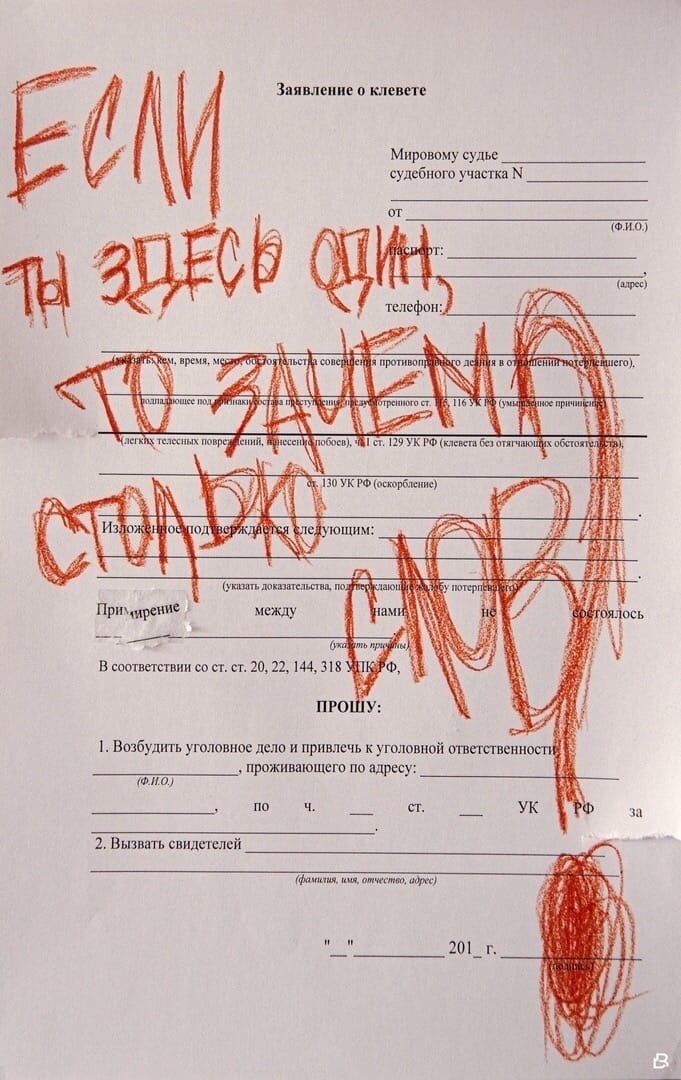 Заявление о клевете
ЕСЛИ
Мировому судье
судебного участка N
от
(Ф.И.О.)
ТЫ ЗДЕСЬ ОДИН,
паспорт:
,
(адрес)
телефон:
(указать: кем, время, место, обстоятельства совершения противоправного деяния в отношении потерпевшего),
ТО ЗАЧЕМ
подпадающее под признаки состава преступления, предусмотренного ст. 115, 116 УК РФ (умышленное причинение
(легких телесных повреждений, нанесение побоев), ч. 1 ст. 129 УК РФ (клевета без отягчающих обстоятельств),
ст. 130 УК РФ (оскорбление)
СТОЛЬКО
Изложенное подтверждается следующим:
СЛОВ?
(указать доказательства, подтверждающие жалобу потерпевшего)
Примирение между нами не состоялось
(указать причины)
В соответствии со ст. ст. 20, 22, 144, 318 УПК РФ,
ПРОШУ:
1. Возбудить уголовное дело и привлечь к уголовной ответственности
, проживающего по адресу:
(Ф.И.О.)
, по ч. ___ ст. ___ УК РФ за
.
2. Вызвать свидетелей
(фамилия, имя, отчество, адрес)
"__"____________ 201_ г.
(подпись)